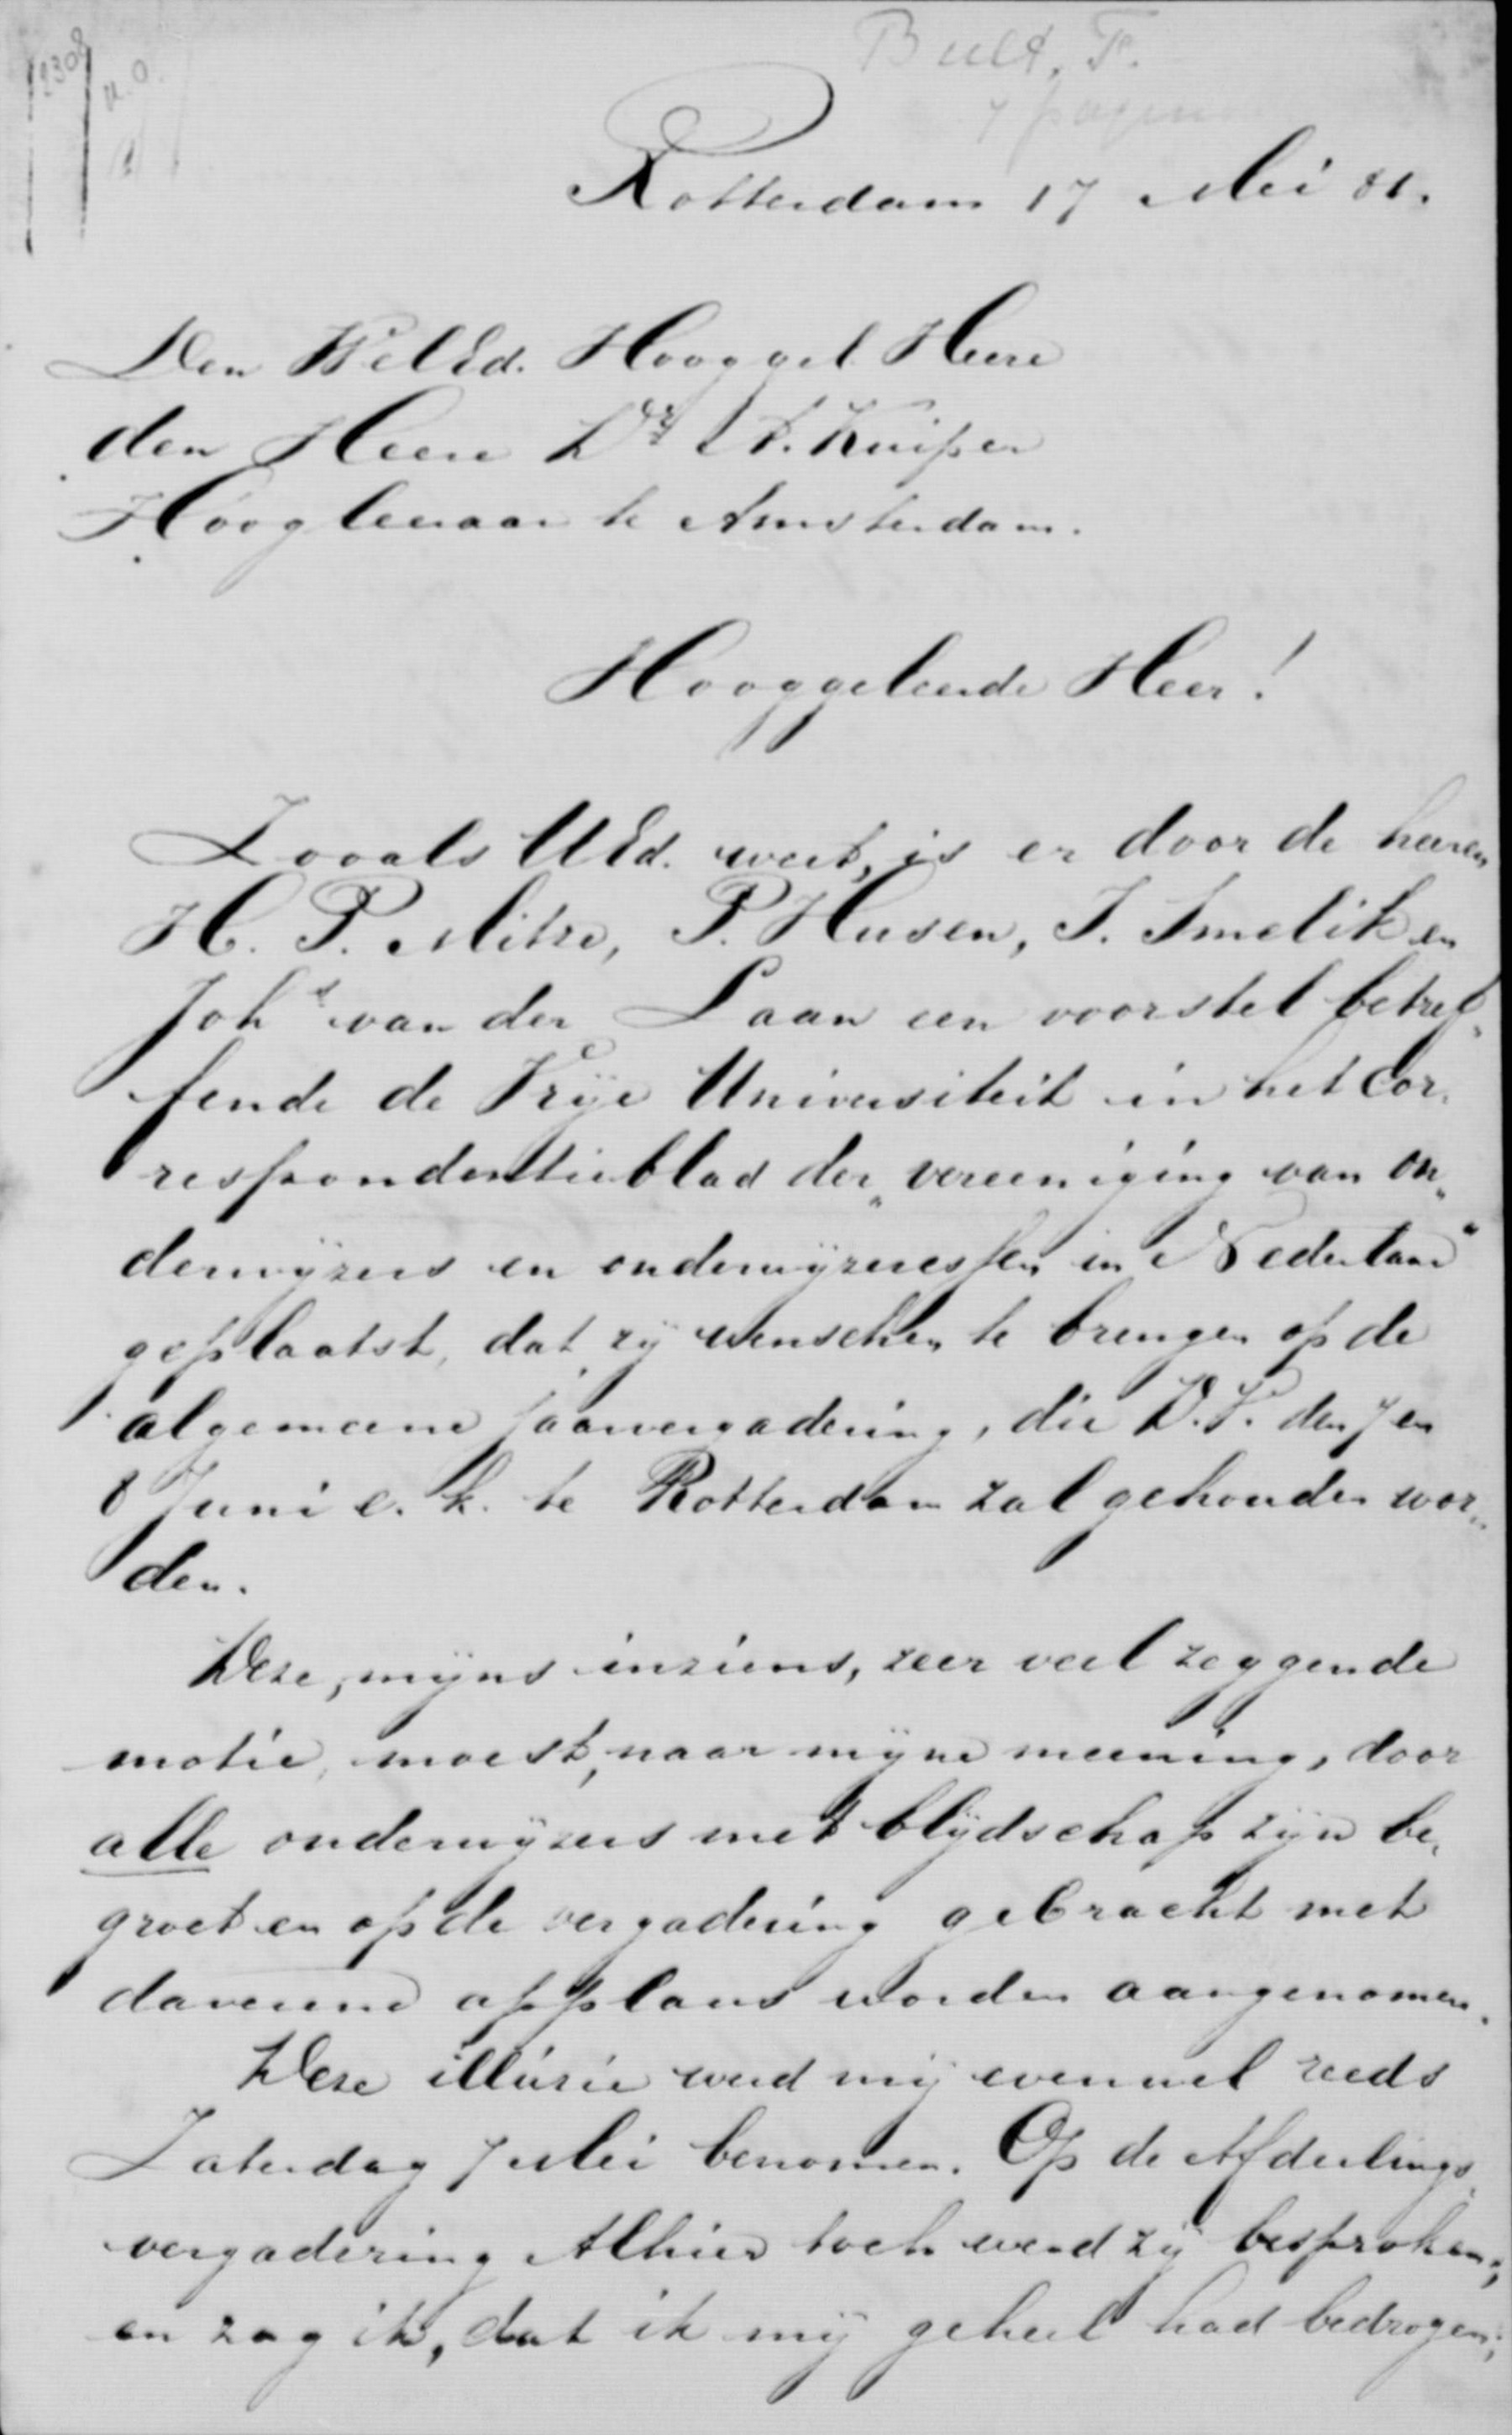 2308
Bult, F.
Rotterdam 17 Mei 81.
Den WelEd. Hooggel Heere
den Heere Dr. A. Kuiper
Hoogleeraar te Amsterdam.
Hooggeleerde Heer!
Zooals UEd. weet, is er door de heeren
H. P. Mitze, P. Husen, J. Smelik en
Johs van der Laan een voorstel betref„
fende de Vrije Universiteit in het Cor„
respondentieblad der „vereeniging van on„
derwijzers en onderwijzeressen in Nederland"
geplaatst, dat zij wenschen te brengen op de
algemeene jaarvergadering, die D.V. den 7 en
8 Juni e. k. te Rotterdam zal gehouden wor„
den.
Deze, mijns inziens, zeer veel zeggende
motie, moest, naar mijne meening, door
alle onderwijzers met blijdschap zijn be„
groet en op de vergadering gebracht met
daverend applaus worden aangenomen.
Deze illusie werd mij evenwel reeds
Zaterdag 7 Mei benomen. Op de Afdeelings„
vergadering Alhier toch werd zij besproken;
en zag ik, dat ik mij geheel had bedrogen;